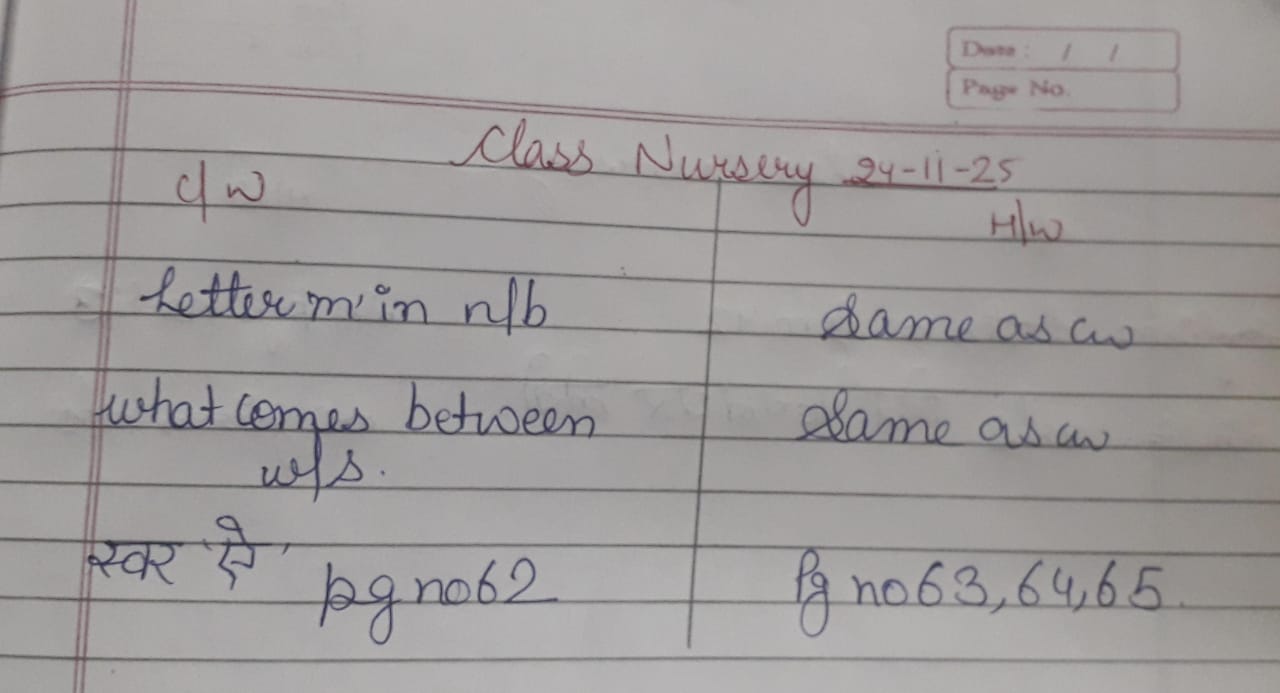 Date : / /
Page No.
Class Nursery 24-11-25
C/W
H/W
Letter 'm' in n/b
Same as cw
what comes between
Same as cw
w/s.
स्वर 'ऐ' pg no 62
Pg no 63, 64, 65.